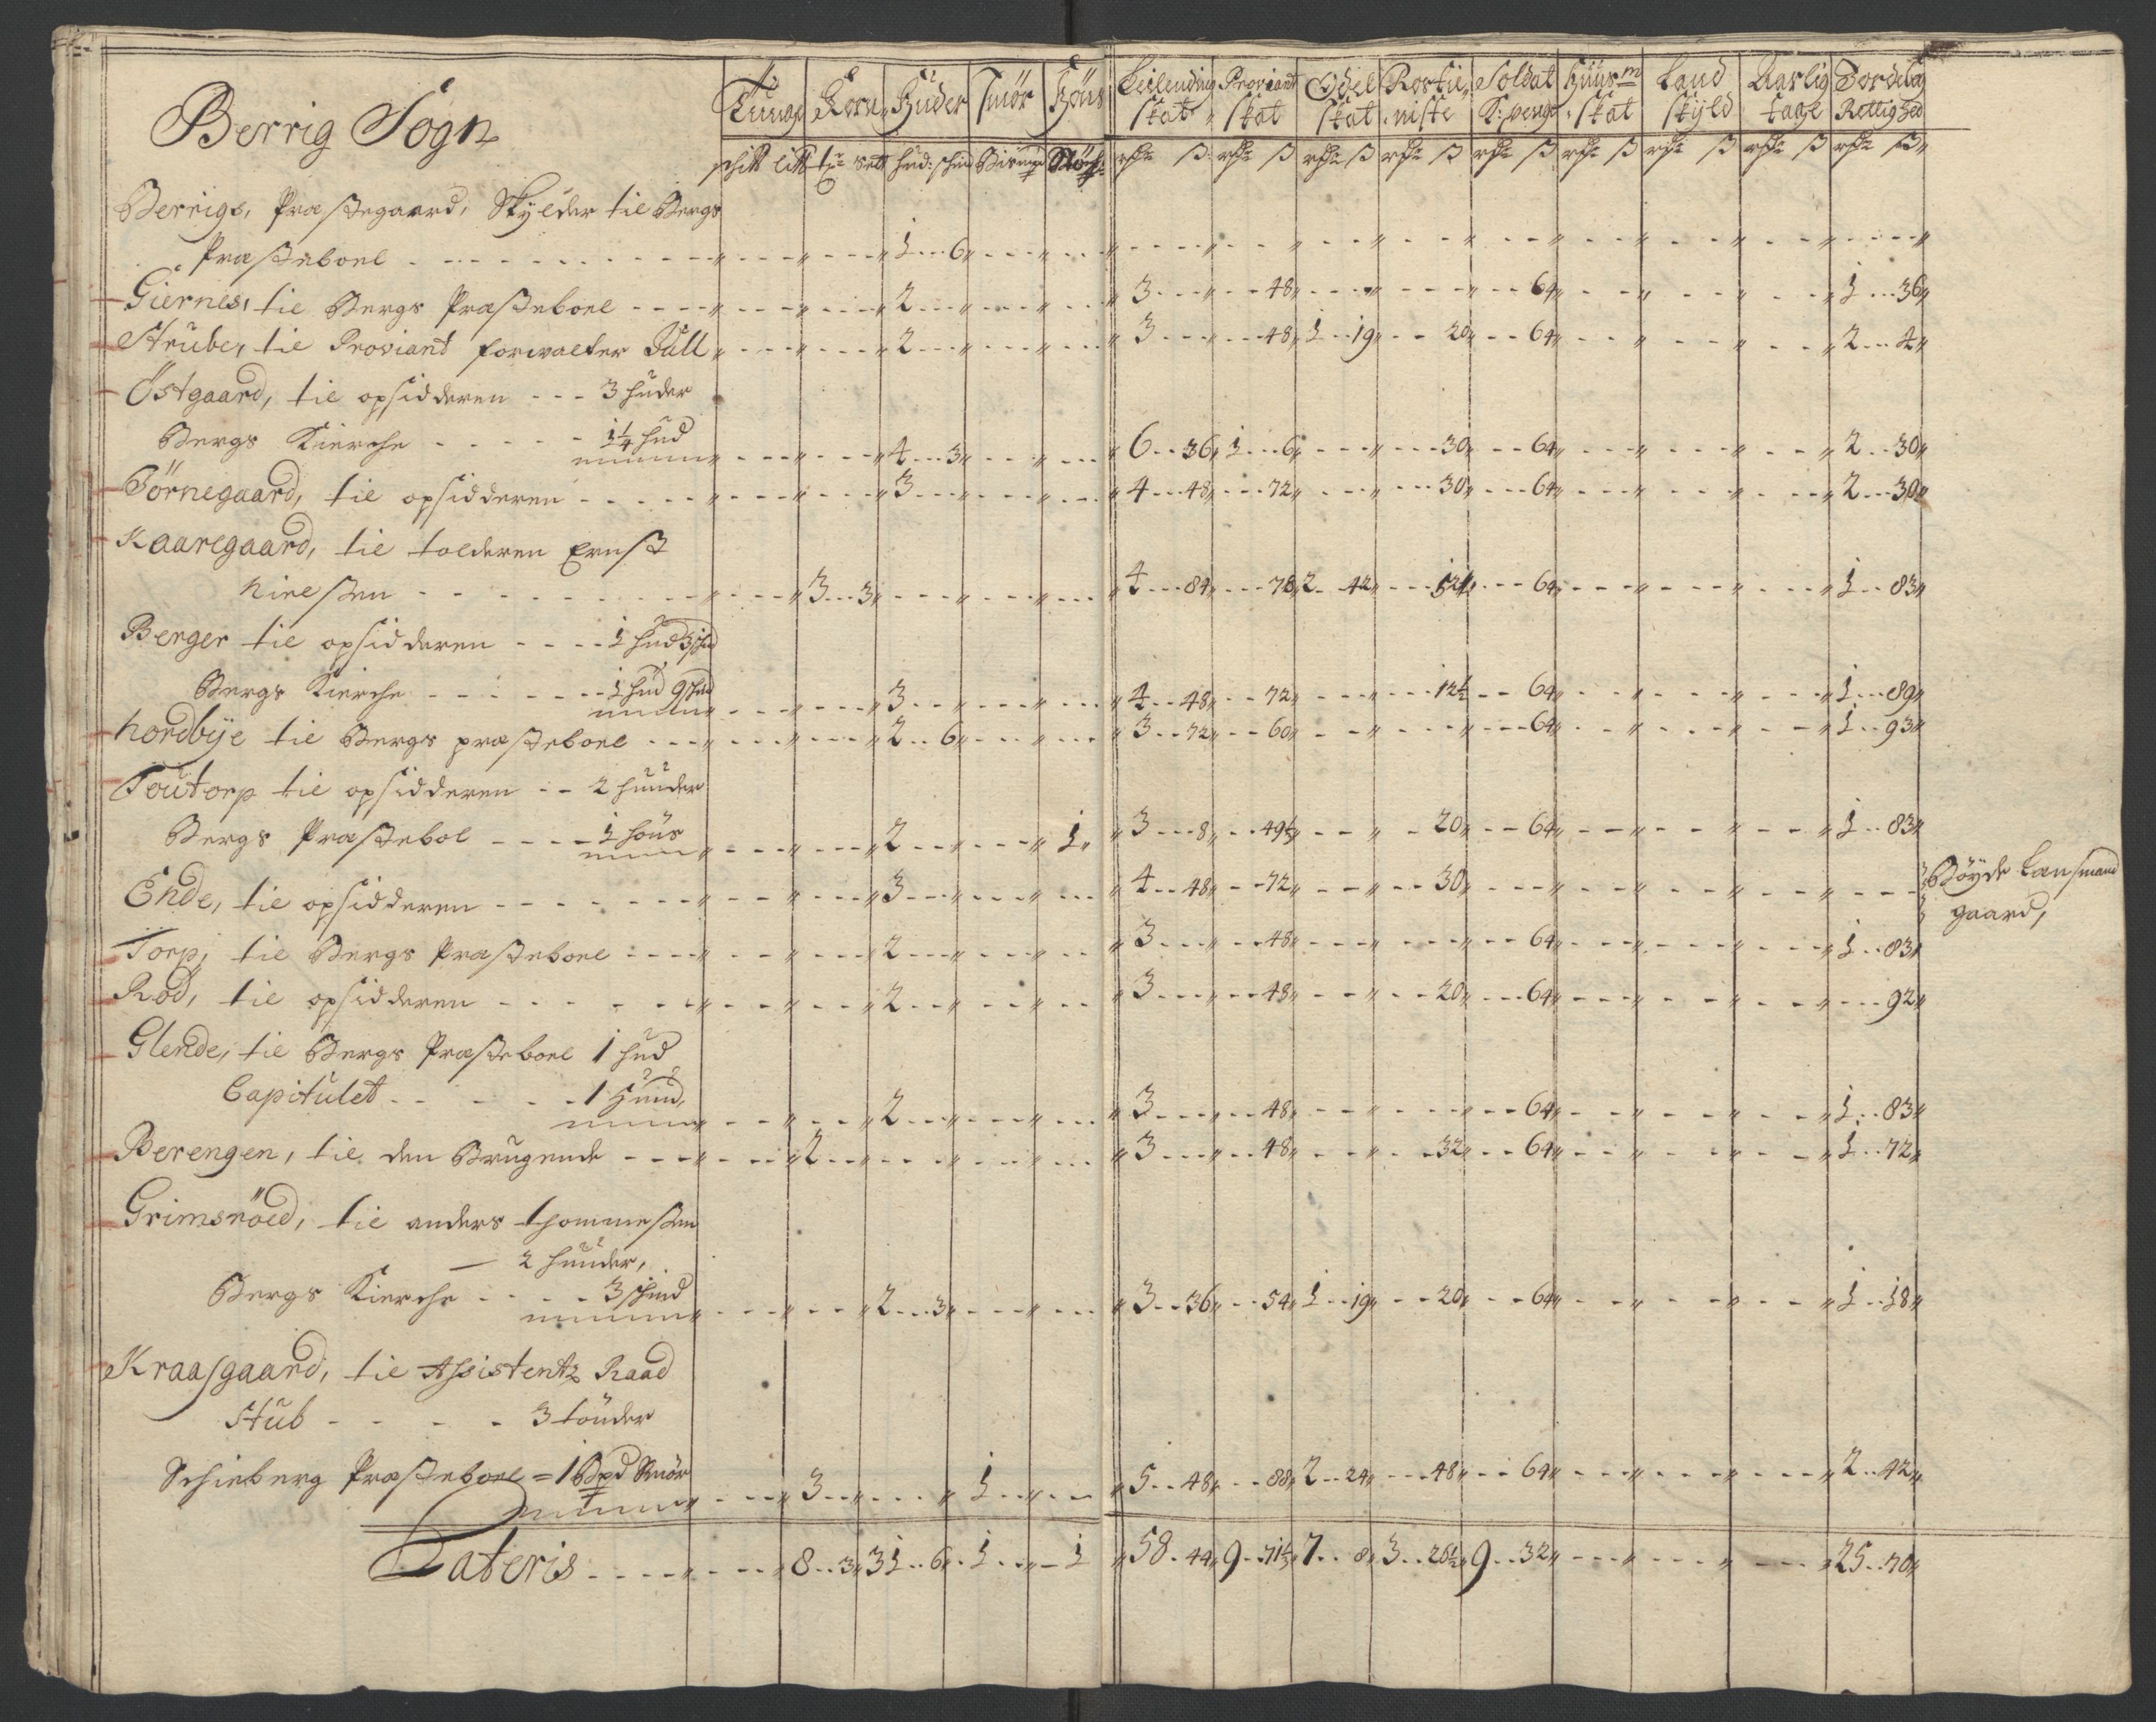 Berrig Sogn
Tunge Korn Huder Smör Höns Leilending skat Proviant skat Odel skat Rostieniste Soldat K: penge Huusm skat Land skÿld Aarlig tage Jordebog Rettighed
schitt litt tr sett hud: schind Bismpd Støch rdr ß rdr ß rdr ß rdr ß rdr ß rdr ß rdr ß rdr ß rdr ß
Berrigs, Præstegaard, Skÿlder til Bergs
Præsteboel 1 6
Giernes, til Bergs Præsteboel 2 3 48 64 1 36
Strube, til Proviant forvalter Jull 2 3 48 1 19 20 64 2 4
Östgaard, til opsidderen 3 huder
Bergs Kierche 1 1/4 hud 4 3 6 36 1 6 30 64 2 30
Törnegaard, til opsidderen 3 4 48 72 30 64 2 30
Kaaregaard, til tolderen Ernst
Nielssen 3 3 4 84 78 2 42 64 1 83
Berger til opsidderen 1 hud 3 schind
Bergs Kierche 1 hud 9 schind 3 4 48 72 12 1/2 64 1 89
Nordbÿe til Bergs præsteboel 2 6 3 72 60 64 1 93
Toutorp til opsidderen 2 huuder
Bergs Præstebol 1 höns 2 1 3 8 49 1/2 20 64 1 83
Ende, til opsidderen 3 4 48 72 30 Böyde Lensmand
gaard,
Torp, til Bergs Præsteboel 2 3 48 64 1 83
Rød, til opsidderen 2 3 48 20 64 92
Glende, til Bergs Præsteboel 1 hud
Capitulet 1 Huud, 2 3 48 64 1 83
Berengen, til den Brugende 2 3 48 32 64 1 72
Grimsröed, til anders thommessen
2 huuder,
Bergs Kierche 3 schind 2 3 3 36 54 1 19 20 64 1 18
Kraasgaard, til Assistentz Raad
Stub 3 tönder
Schieberg Præsteboel = 1 Bpd Smör 3 1 5 48 88 2 24 48 64 2 42
Lateris 8 3 31 6 1 1 58 44 9 71 1/2 7 8 3 26 1/2 9 32 25 70